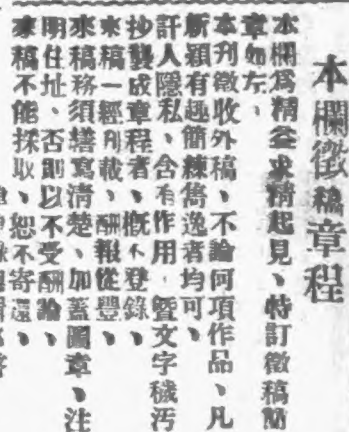 本欄徵稿章程
本欄爲精益求精起見、特訂徵稿簡
章如左、
本刊徵收外稿、不論何項作品、凡
新穎有趣簡練雋逸者均可、
訐人隱私、含有作用、暨文字穢汚
抄襲成章程者、概不登錄、
來稿一經刊載、酬報從豐、
來稿務須繕寫清楚、加蓋圖章、注
明住址、否則以不受酬論、
來稿不能採取、恕不寄還、